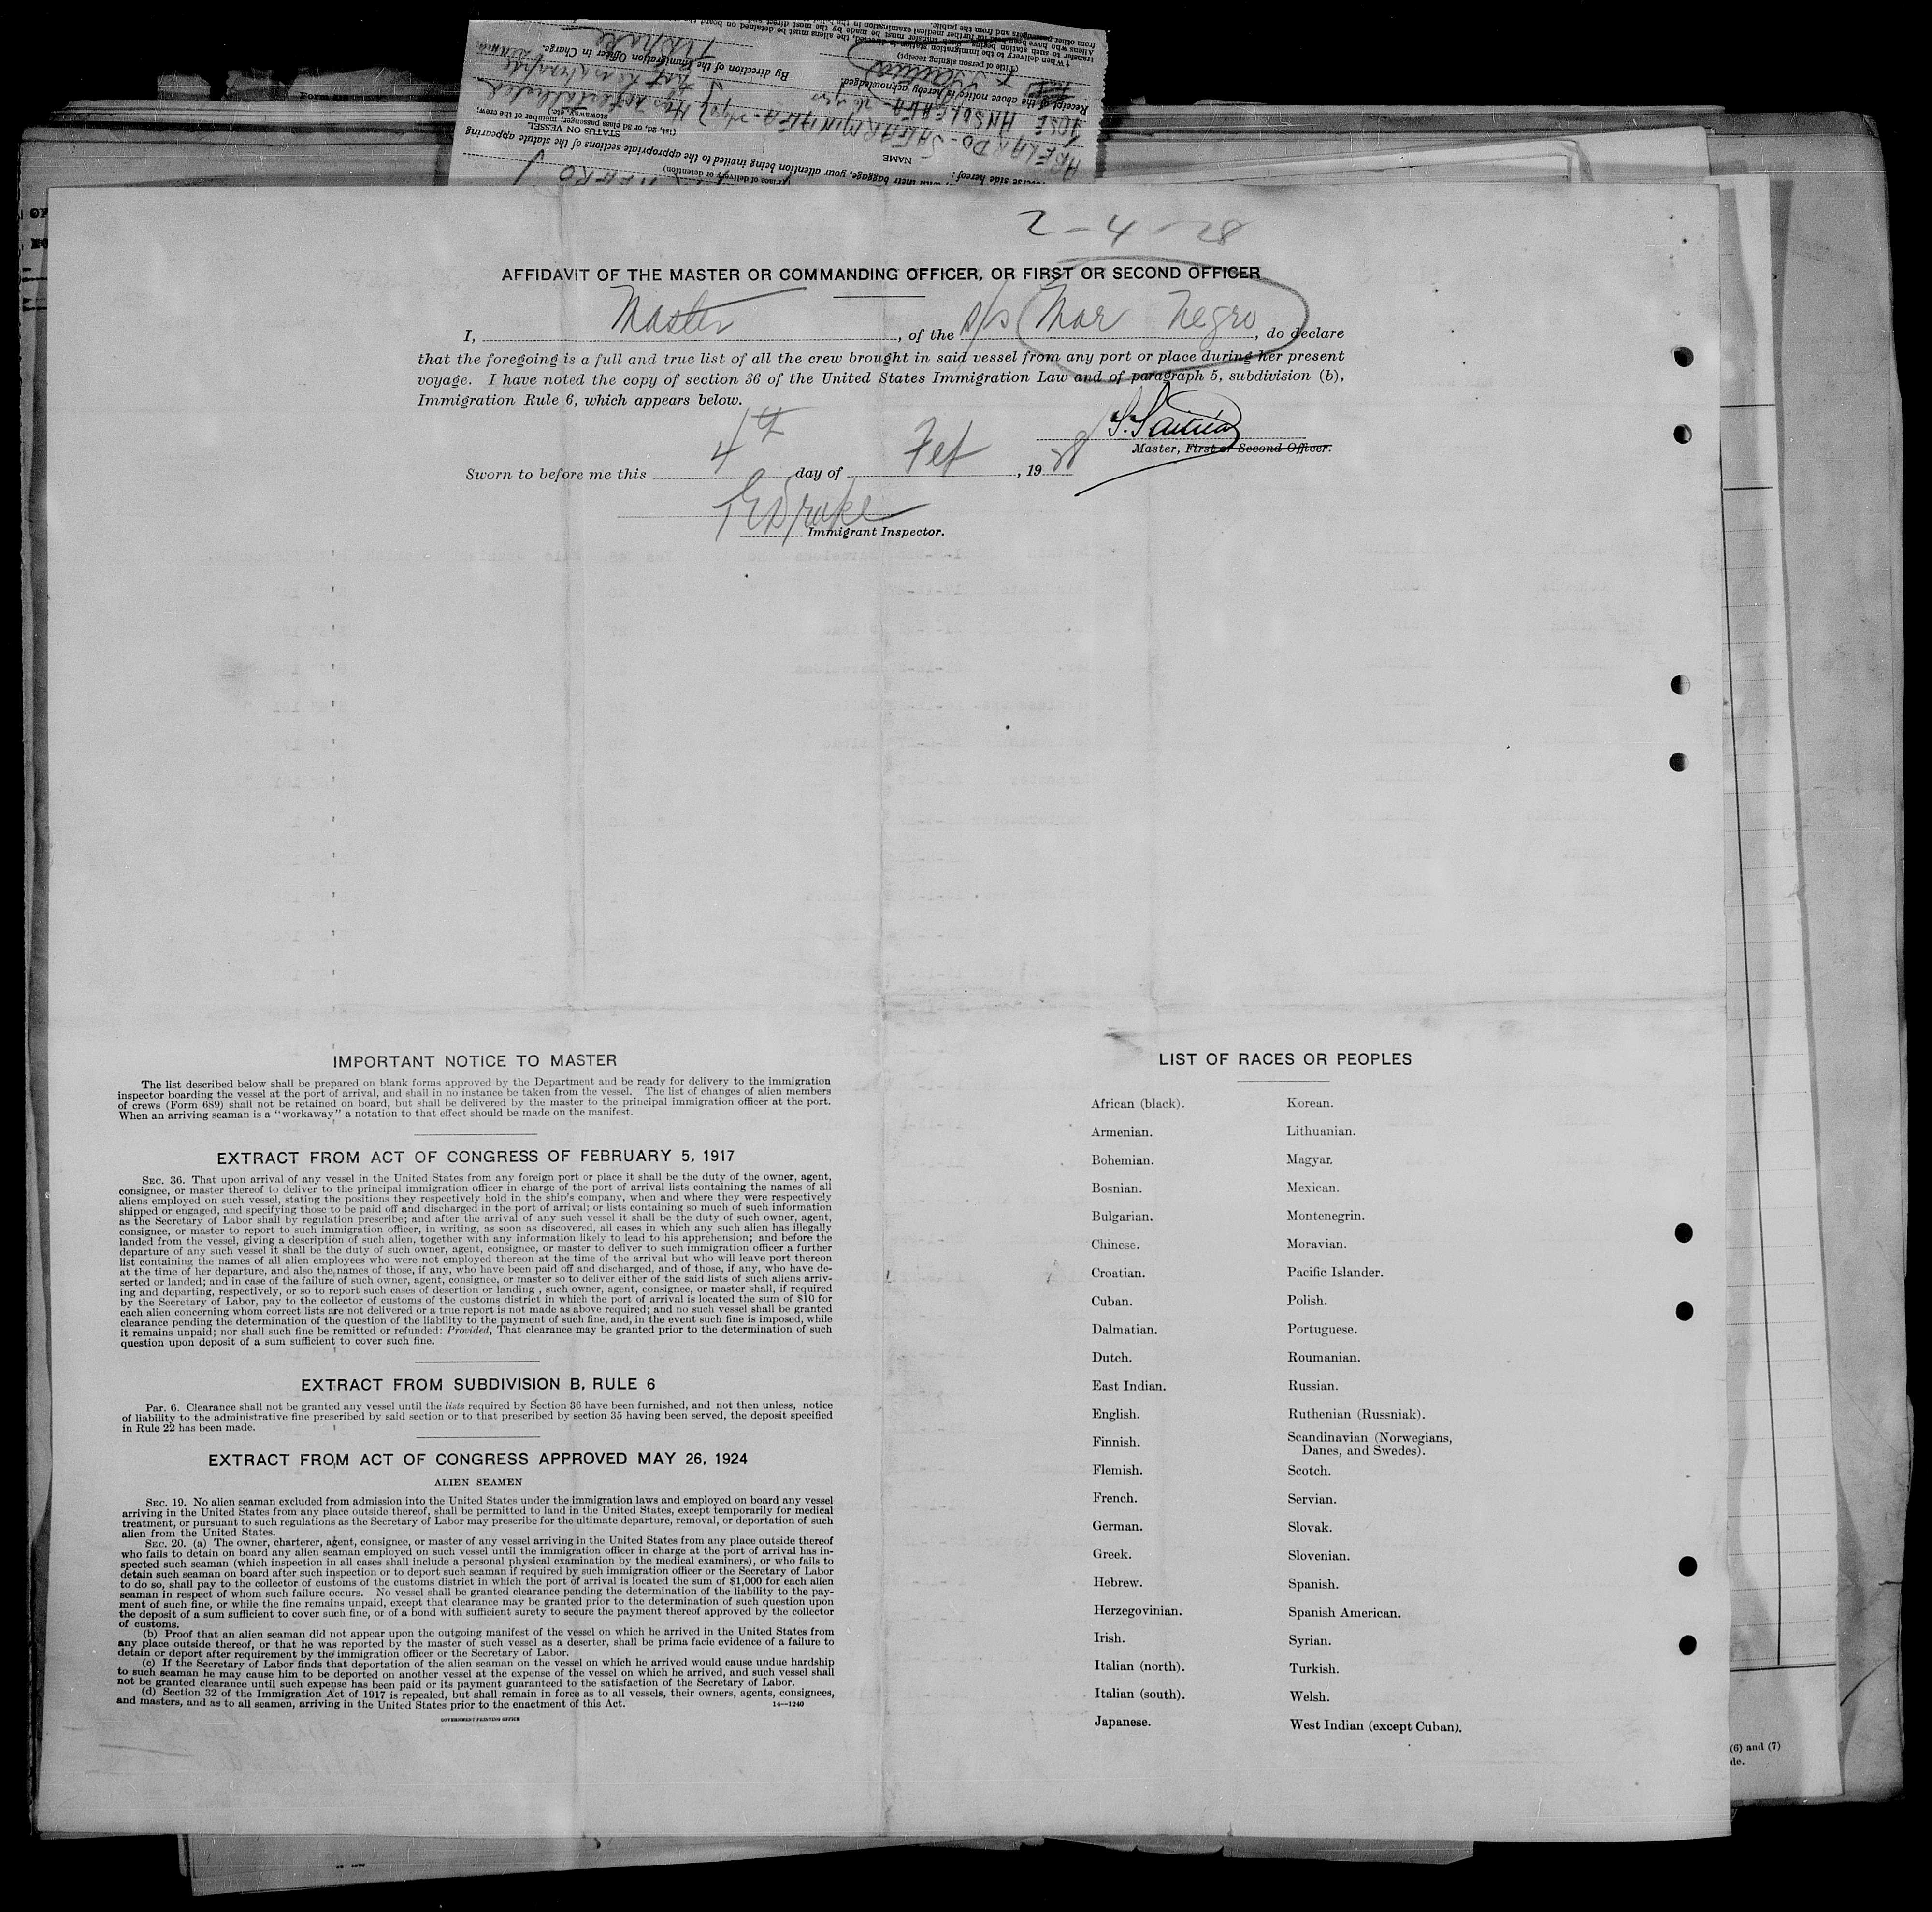 2-4-28
AFFIDAVIT OF THE MASTER OR COMMANDING OFFICER, OR FIRST OR SECOND OFFICER
I, Master, of the s/s Mar Negro, do declare
that the foregoing is a full and true list of all the crew brought in said vessel from any port or place during her present
voyage. I have noted the copy of section 36 of the United States Immigration Law and of paragraph 5, subdivision (b),
Immigration Rule 6, which appears below.
Master, First or Second Officer.
Sworn to before me this 4th day of Feb, 1928
Drake
Immigrant Inspector.
IMPORTANT NOTICE TO MASTER
The list described below shall be prepared on blank forms approved by the Department and be ready for delivery to the immigration
inspector boarding the vessel at the port of arrival, and shall in no instance be taken from the vessel. The list of changes of alien members
of crews (Form 689) shall not be retained on board, but shall be delivered by the master to the principal immigration officer at the port.
When an arriving seaman is a "workaway" a notation to that effect should be made on the manifest.
EXTRACT FROM ACT OF CONGRESS OF FEBRUARY 5, 1917
SEC. 36. That upon arrival of any vessel in the United States from any foreign port or place it shall be the duty of the owner, agent,
consignee, or master thereof to deliver to the principal immigration officer in charge of the port of arrival lists containing the names of all
aliens employed on such vessel, stating the positions they respectively hold in the ship's company, when and where they were respectively
shipped or engaged, and specifying those to be paid off and discharged in the port of arrival; or lists containing so much of such information
as the Secretary of Labor shall by regulation prescribe; and after the arrival of any such vessel it shall be the duty of such owner, agent,
consignee, or master to report to such immigration officer, in writing, as soon as discovered, all cases in which any such alien has illegally
landed from the vessel, giving a description of such alien, together with any information likely to lead to his apprehension; and before the
departure of any such vessel it shall be the duty of such owner, agent, consignee, or master to deliver to such immigration officer a further
list containing the names of all alien employees who were not employed thereon at the time of the arrival but who will leave port thereon
at the time of her departure, and also the names of those, if any, who have been paid off and discharged, and of those, if any, who have de-
serted or landed; and in case of the failure of such owner, agent, consignee, or master so to deliver either of the said lists of such aliens arriv-
ing and departing, respectively, or so to report such cases of desertion or landing , such owner, agent, consignee, or master shall, if required
by the Secretary of Labor, pay to the collector of customs of the customs district in which the port of arrival is located the sum of $10 for
each alien concerning whom correct lists are not delivered or a true report is not made as above required; and no such vessel shall be granted
clearance pending the determination of the question of the liability to the payment of such fine, and, in the event such fine is imposed, while
it remains unpaid; nor shall such fine be remitted or refunded: Provided, That clearance may be granted prior to the determination of such
question upon deposit of a sum sufficient to cover such fine.
EXTRACT FROM SUBDIVISION B, RULE 6
Par. 6. Clearance shall not be granted any vessel until the lists required by Section 36 have been furnished, and not then unless, notice
of liability to the administrative fine prescribed by said section or to that prescribed by section 35 having been served, the deposit specified
in Rule 22 has been made.
EXTRACT FROM ACT OF CONGRESS APPROVED MAY 26, 1924
ALIEN SEAMEN
SEC. 19. No alien seaman excluded from admission into the United States under the immigration laws and employed on board any vessel
arriving in the United States from any place outside thereof, shall be permitted to land in the United States, except temporarily for medical
treatment, or pursuant to such regulations as the Secretary of Labor may prescribe for the ultimate departure, removal, or deportation of such
alien from the United States.
SEC. 20. (a) The owner, charterer, agent, consignee, or master of any vessel arriving in the United States from any place outside thereof
who fails to detain on board any alien seaman employed on such vessel until the immigration officer in charge at the port of arrival has in-
spected such seaman (which inspection in all cases shall include a personal physical examination by the medical examiners), or who fails to
detain such seaman on board after such inspection or to deport such seaman if required by such immigration officer or the Secretary of Labor
to do so, shall pay to the collector of customs of the customs district in which the port of arrival is located the sum of $1,000 for each alien
seaman in respect of whom such failure occurs. No vessel shall be granted clearance pending the determination of the liability to the pay-
ment of such fine, or while the fine remains unpaid, except that clearance may be granted prior to the determination of such question upon
the deposit of a sum sufficient to cover such fine, or of a bond with sufficient surety to secure the payment thereof approved by the collector
of customs.
(b) Proof that an alien seaman did not appear upon the outgoing manifest of the vessel on which he arrived in the United States from
any place outside thereof, or that he was reported by the master of such vessel as a deserter, shall be prima facie evidence of a failure to
detain or deport after requirement by the immigration officer or the Secretary of Labor.
(c) If the Secretary of Labor finds that deportation of the alien seaman on the vessel on which he arrived would cause undue hardship
to such seaman he may cause him to be deported on another vessel at the expense of the vessel on which he arrived, and such vessel shall
not be granted clearance until such expense has been paid or its payment guaranteed to the satisfaction of the Secretary of Labor.
(d) Section 32 of the Immigration Act of 1917 is repealed, but shall remain in force as to all vessels, their owners, agents, consignees,
and masters, and as to all seamen, arriving in the United States prior to the enactment of this Act. 14—1240
GOVERNMENT PRINTING OFFICE
LIST OF RACES OR PEOPLES
African (black). Korean.
Armenian. Lithuanian.
Bohemian. Magyar.
Bosnian. Mexican.
Bulgarian. Montenegrin.
Chinese. Moravian.
Croatian. Pacific Islander.
Cuban. Polish.
Dalmatian. Portuguese.
Dutch. Roumanian.
East Indian. Russian.
English. Ruthenian (Russniak).
Finnish. Scandinavian (Norwegians,
Danes, and Swedes).
Flemish. Scotch.
French. Servian.
German. Slovak.
Greek. Slovenian.
Hebrew. Spanish.
Herzegovinian. Spanish American.
Irish. Syrian.
Italian (north). Turkish.
Italian (south). Welsh.
Japanese. West Indian (except Cuban).
(6) and (7)